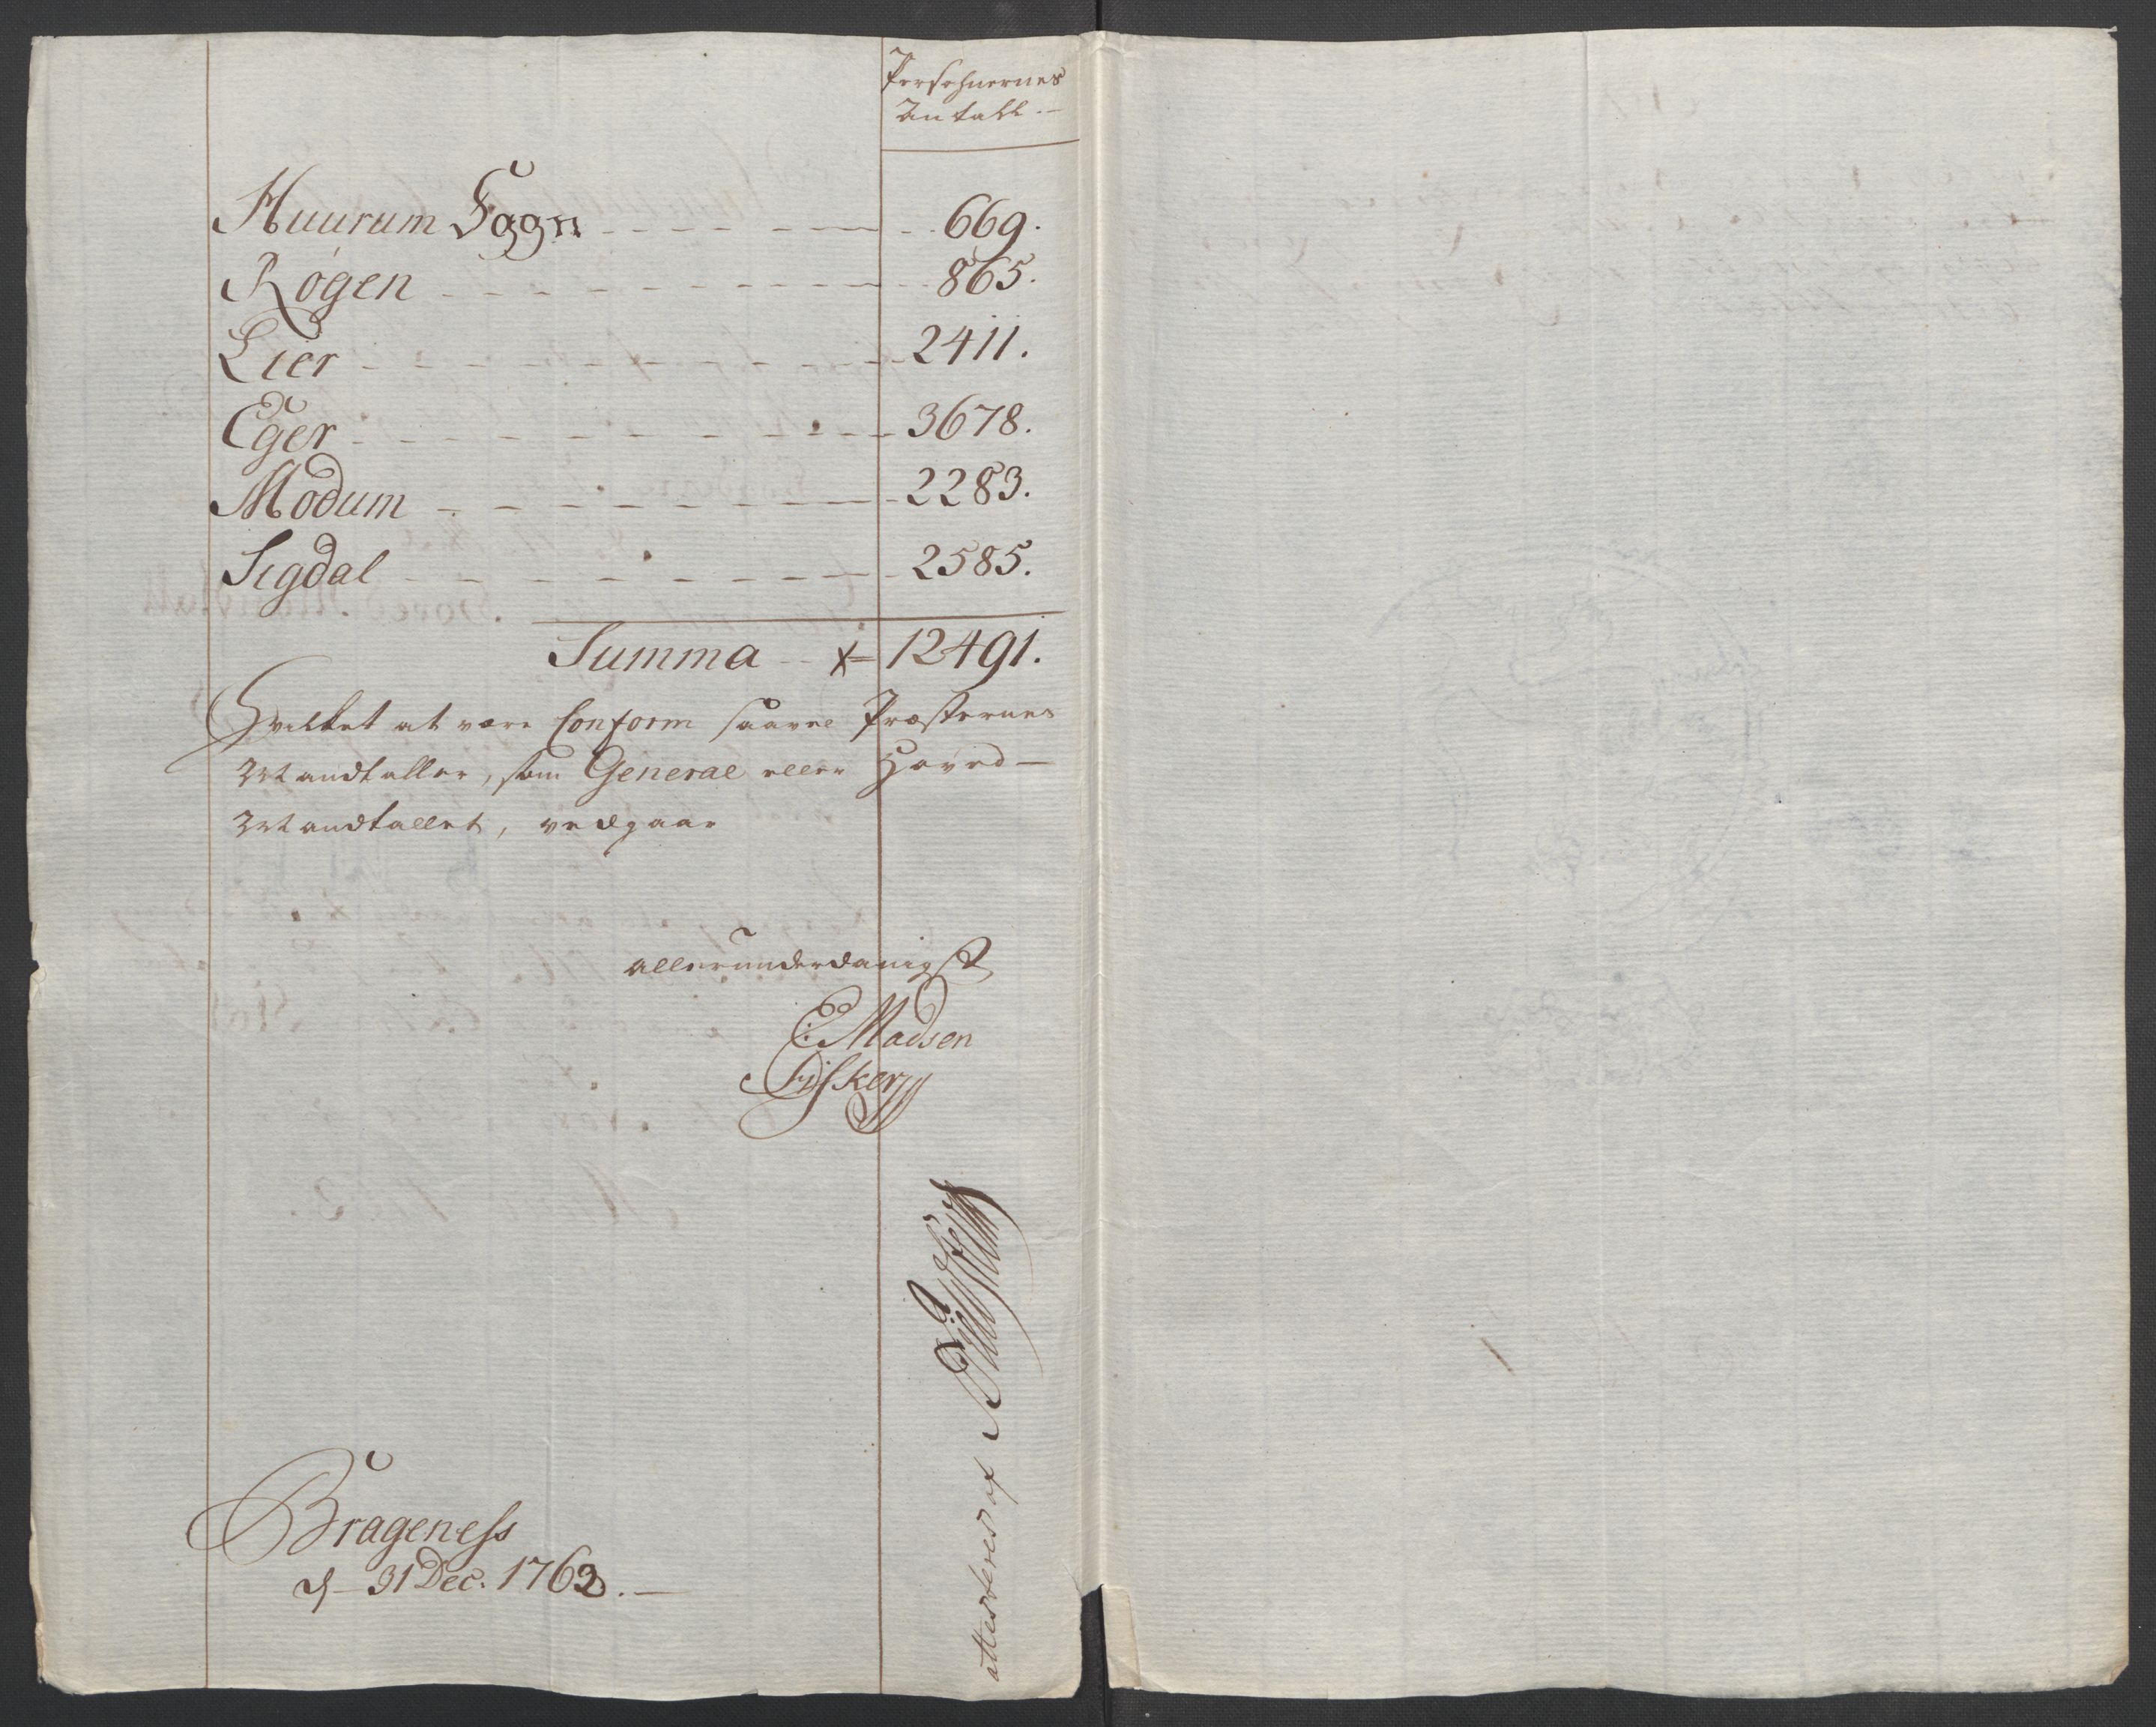 Persohnernes
Antall.—
Huurum Sogn - - - - - 669.
Røgen - - - - - 865.
Lier - - - - - 2411.
Eger - - - - - 3678.
Modum - - - - - 2283.
Sigdal - - - - - 2585.
Summa - - x 12491.
Hvilket at være Conform saavel Præsternes
Mandtaller, som General eller Hoved-
Mandtallet, vedgaar
allerunderdanigst
C: Madsen
Fisker
attesteres af
Brageness
d – 31 Dec. 1762. —